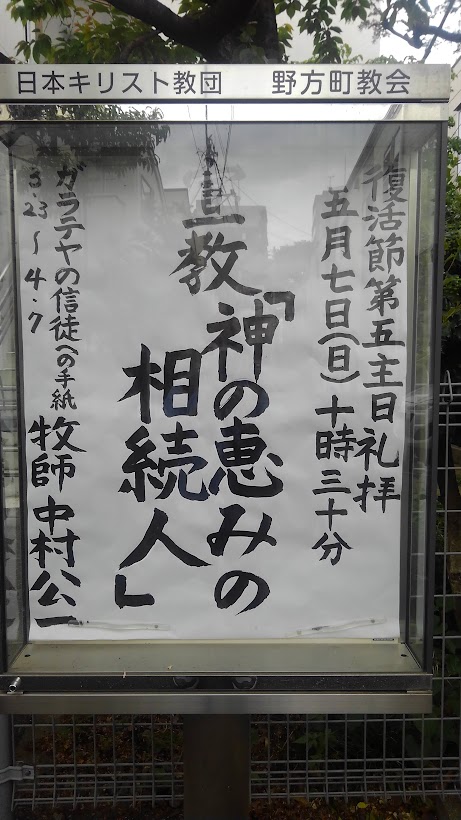 日本キリスト教団 野方町教会
復活節第五主日礼拝
五月七日(日)十時三十分
宣教「神の恵みの
相続人」
ガラテヤの信徒への手紙
3.23〜4.7
牧師 中村公一